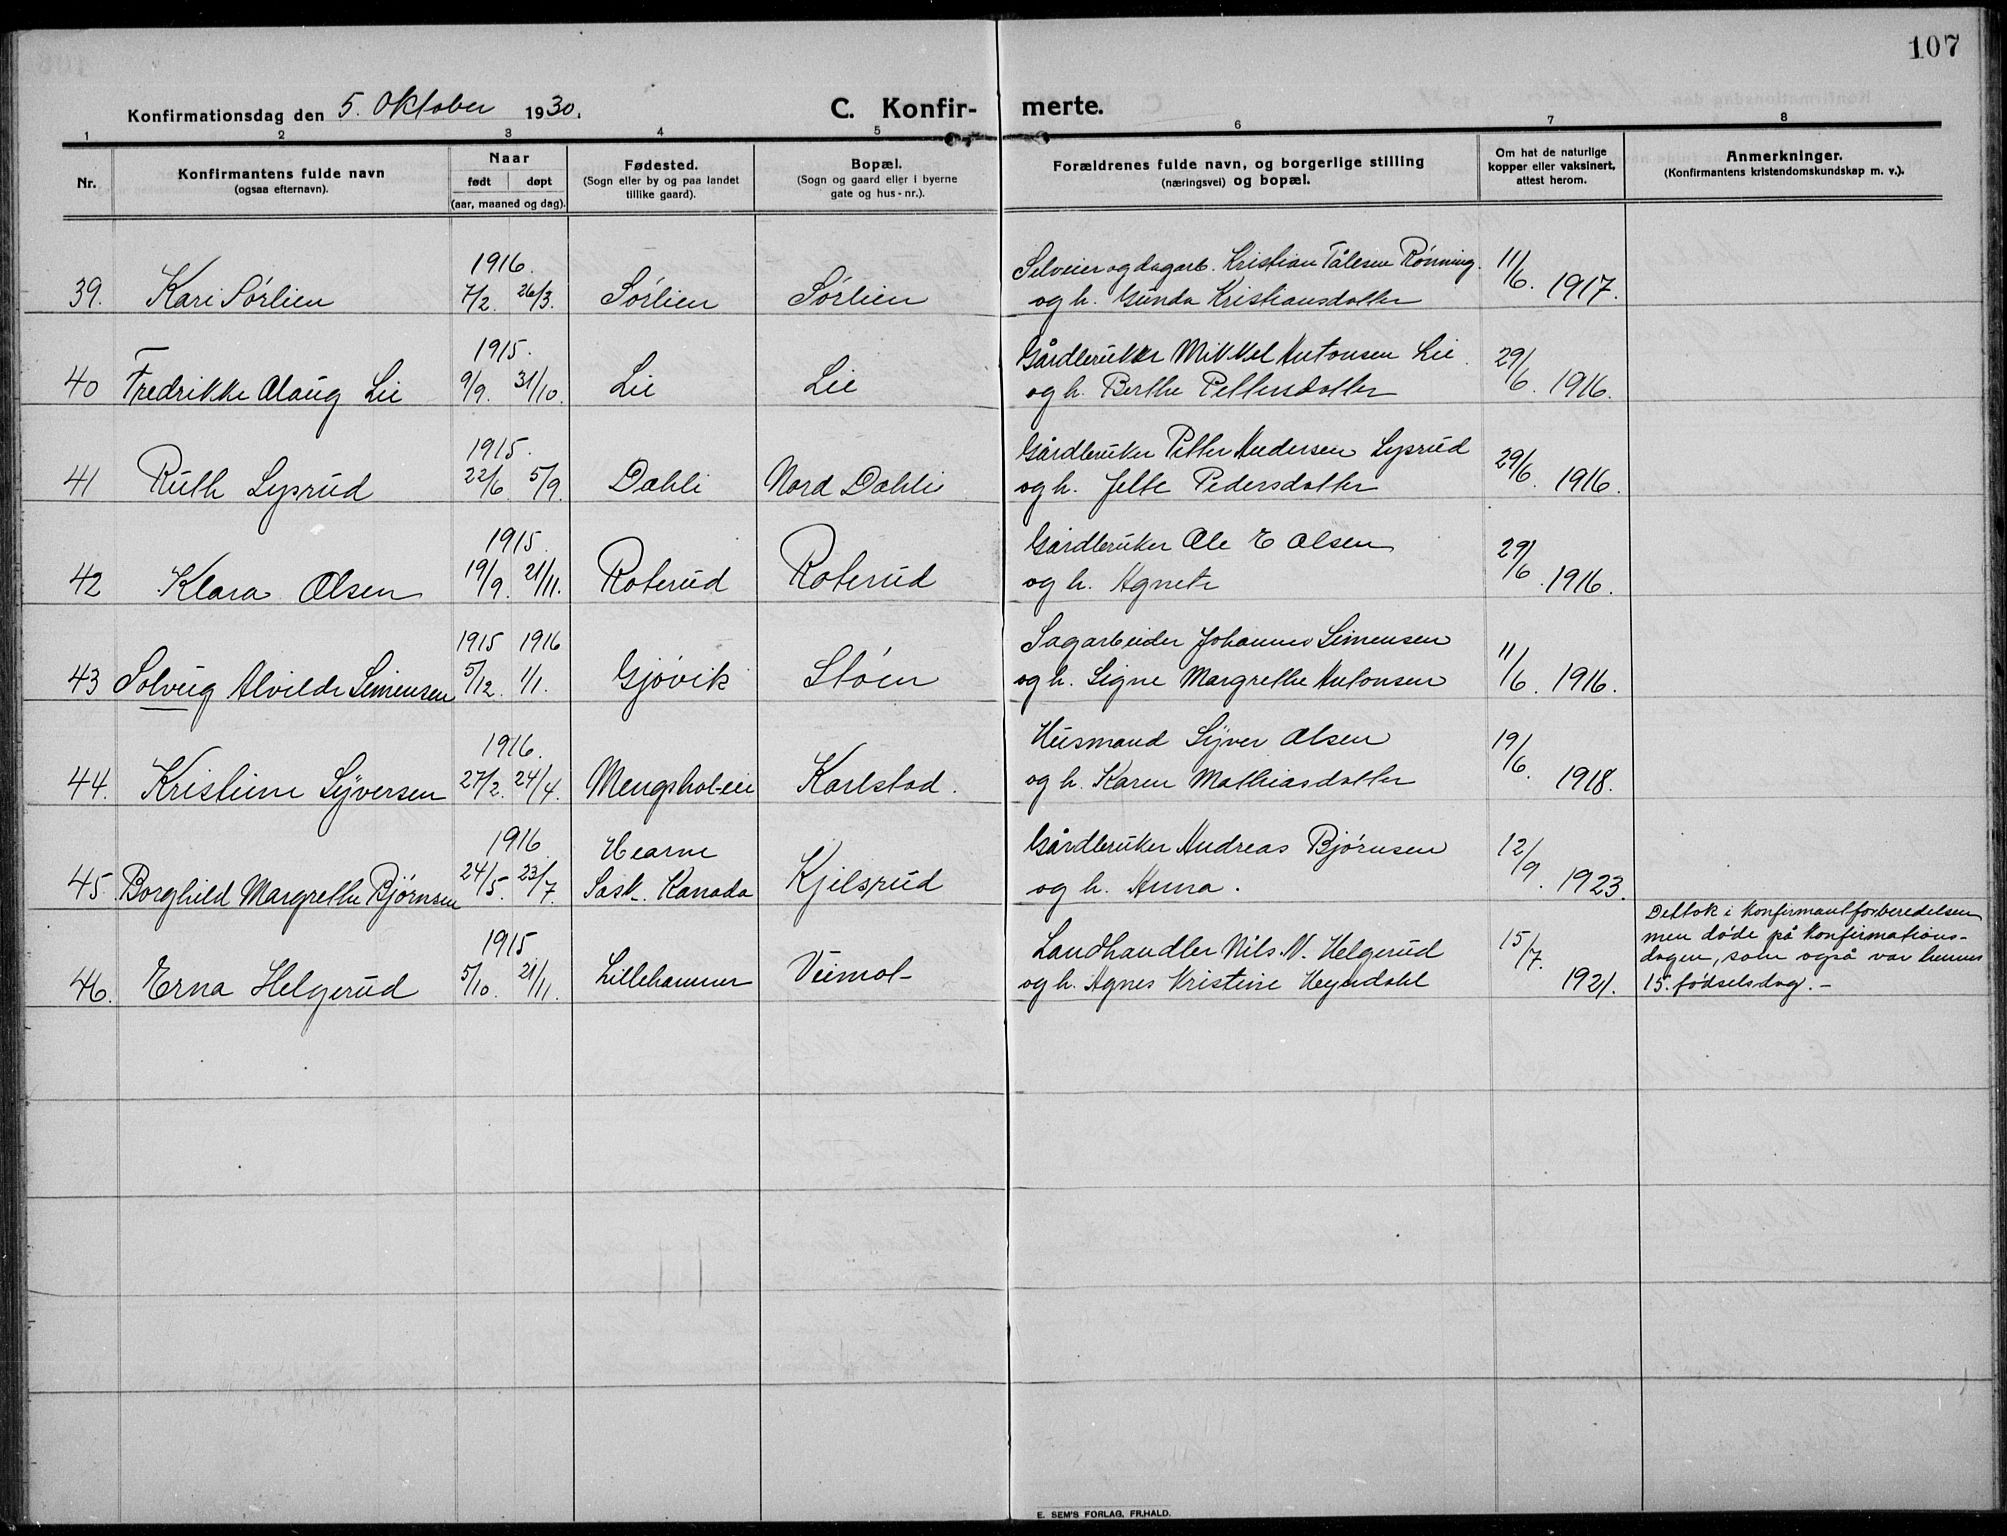 107
Konfirmationsdag den 5. Oktober 1930.
C. Konfir- merte.
1 2 3 4 5 6 7 8
Nr.
Konfirmantens fulde navn
(ogsaa efternavn).
Naar
født døpt
(aar, maaned og dag).
Fødested.
(Sogn eller by og paa landet
tillike gaard).
Bopæl.
(Sogn og gaard eller i byerne
gate og hus-nr.).
Forældrenes fulde navn, og borgerlige stilling
(næringsvei) og bopæl.
Om hat de naturlige
kopper eller vaksinert,
attest herom.
Anmerkninger.
(Konfirmantens kristendomskundskap m. v.).
1916. Selveier og dagarb. Kristian Pålesen Rønning. 11/6.
39. Kari Sørlien 7/2. 26/3. Sørlien Sørlien og h. Gunda Kristiansdatter 1917.
1915. Gårdbruker Mikkel Antonsen Lie. 29/6.
40 Fredrikke Alaug Lie 9/9. 31/10. Lie Lie og h. Berthe Pettersdatter 1916.
1915. Gårdbruker Petter Andersen Lysrud 29/6.
41 Ruth Lysrud 22/6. 5/9. Dahli Nord Dahli og h. Jelte Pedersdatter 1916.
1915. Gårdbruker Ole E Olsen 29/6
42 Klara Olsen 19/9. 21/11. Roterud Roterud og h. Agnete 1916.
1915 1916 Sagarbeider Johannes Simensen 11/6
43 Solveig Alvilde Simensen 5/12. 1/1. Gjøvik Støen og h. Signe Margrethe Antonsen 1916.
1916. Husmand Syver Olsen 19/6.
44. Kristine Syversen 27/2. 24/4. Mengshol-eie Karlstad. og h. Karen Mathiasdatter 1918.
1916 Hearne Gårdbruker Andreas Bjørnsen 12/9.
45. Borghild Margrethe Bjørnsen 24/5. 23/7. Sask. Kanada Kjelsrud og h. Anna. 1923.
1915 Landhandler Nils N. Helgerud 15/7.
46. Erna Helgerud 5/10. 21/11. Lillehammer Veimot og h. Agnes Kristine Heyerdahl 1921.
Deltok i konfirmantforberedelsen
men døde på konfirmations-
dagen, som også var hennes
15. fødselsdag. -
E. SEM'S FORLAG, FR.HALD.